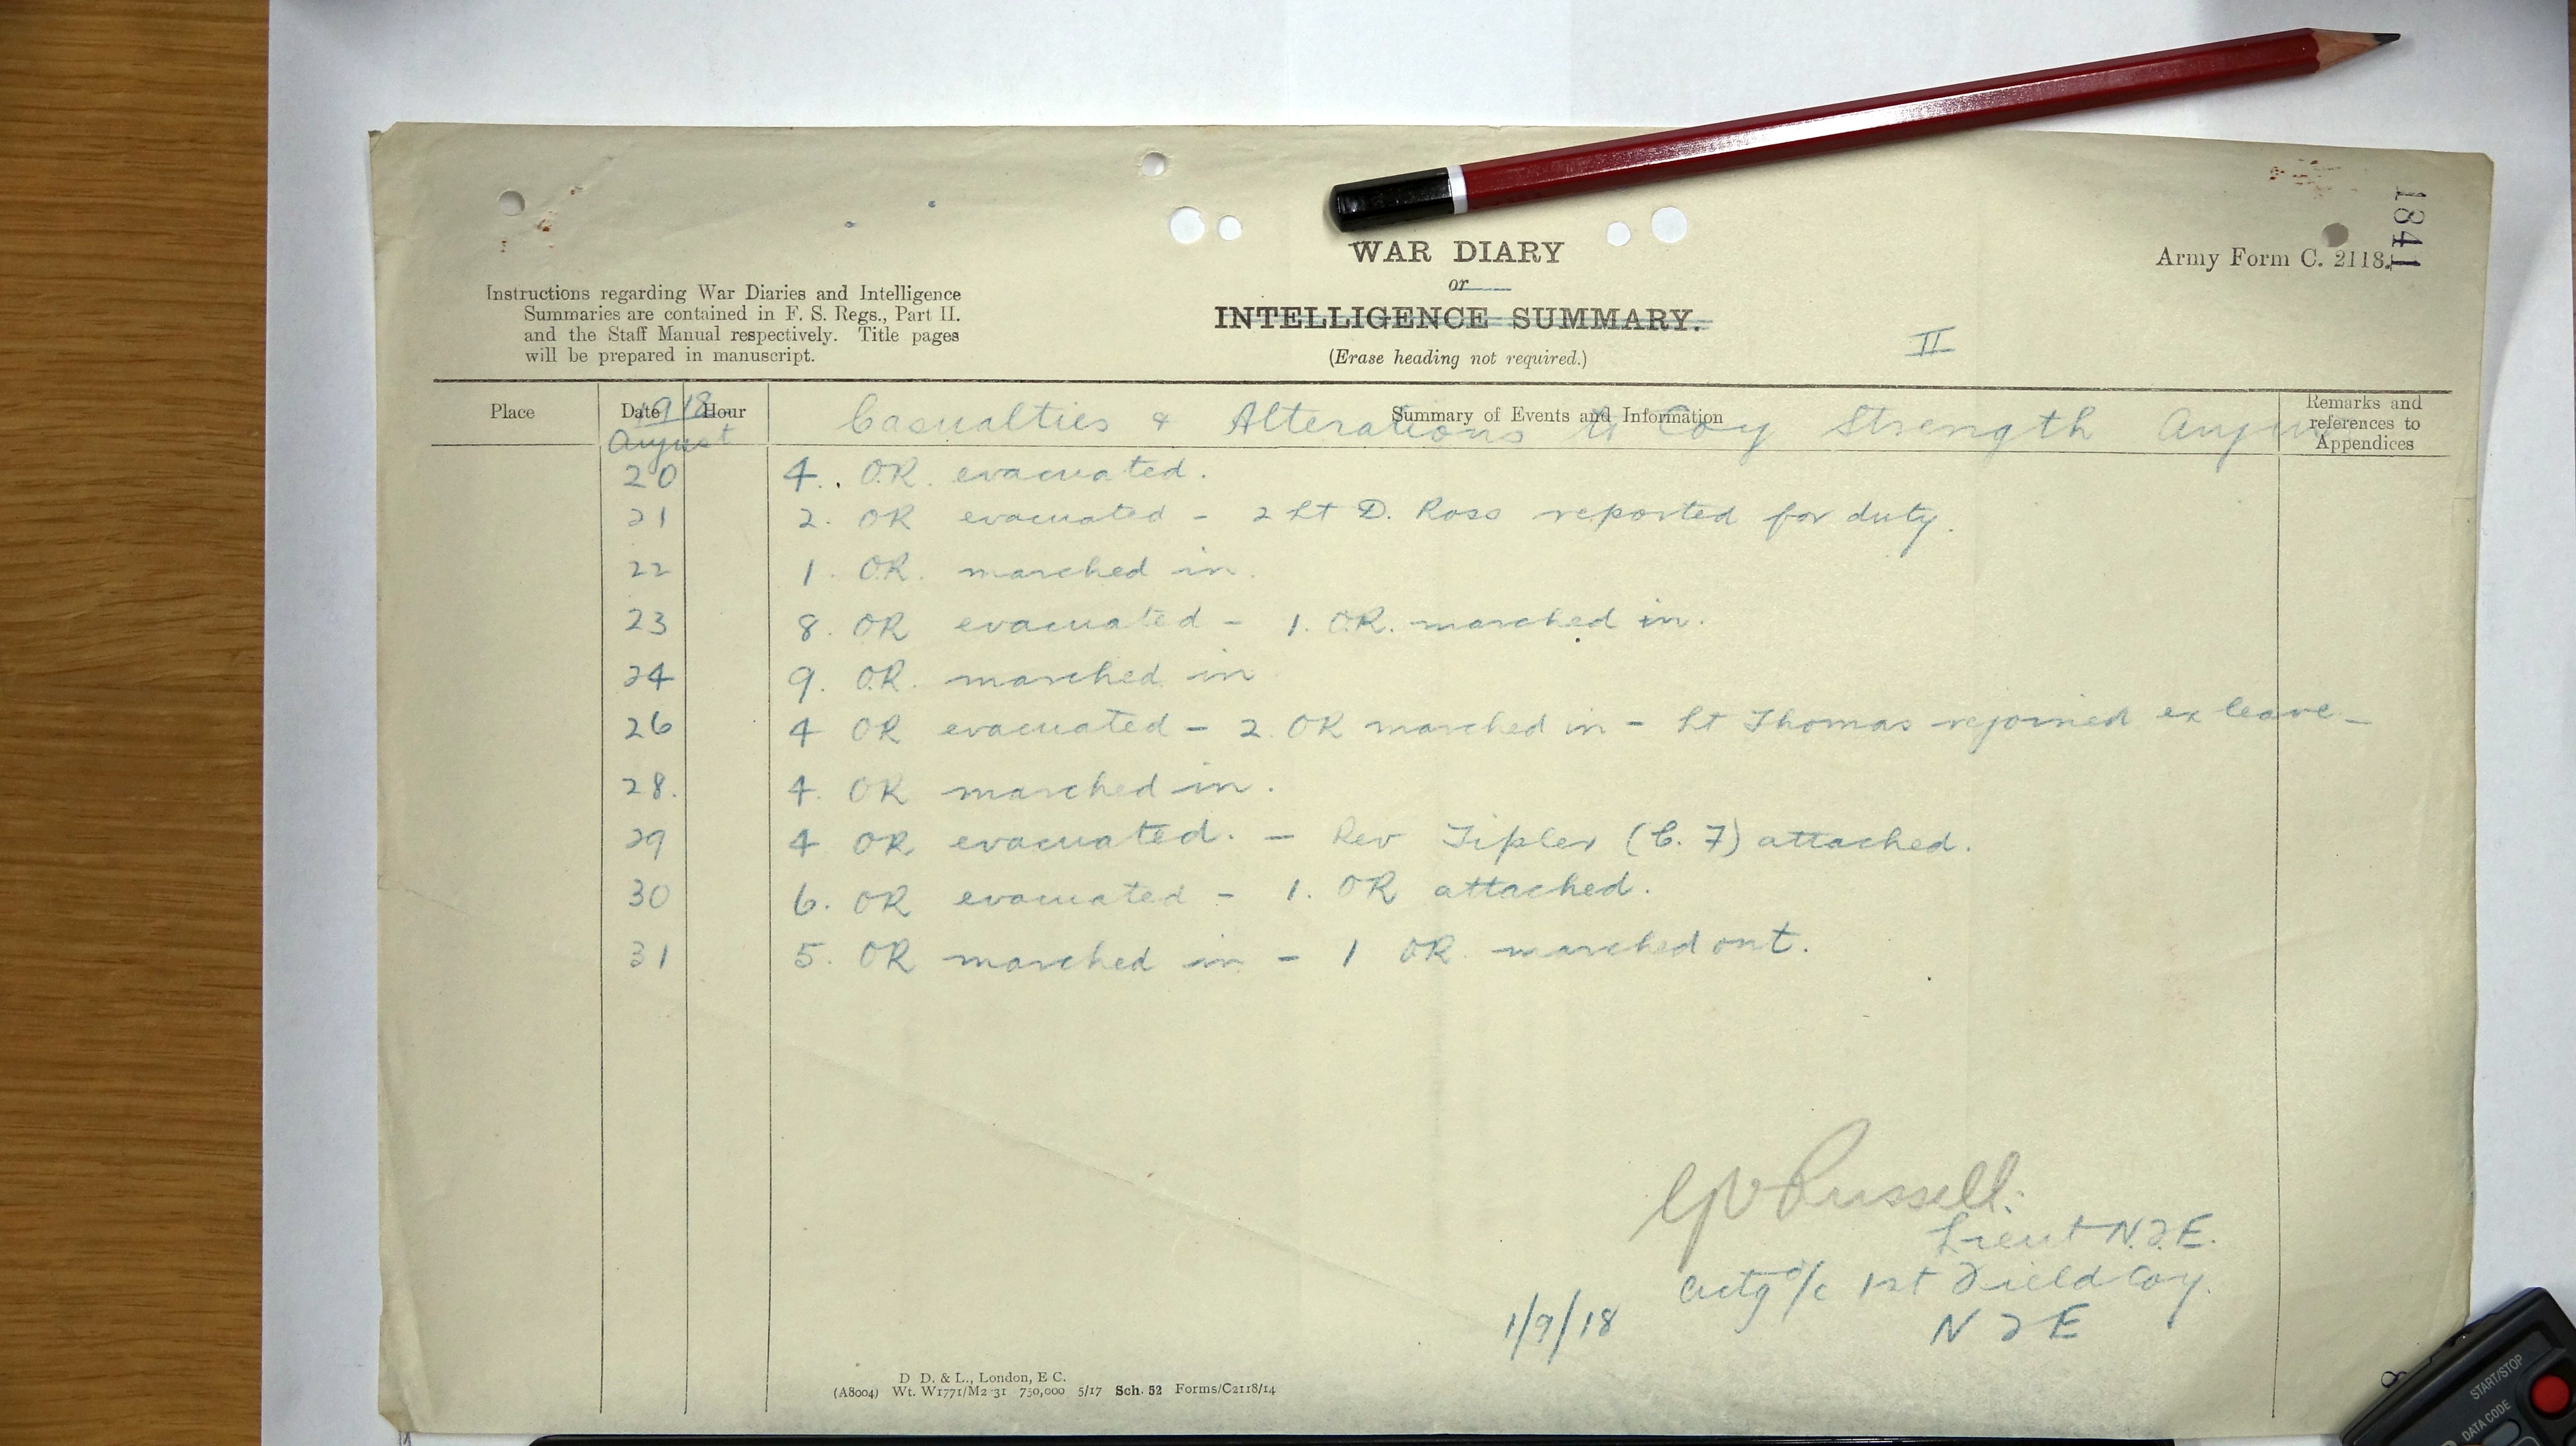 1841
WAR DIARY
Army Form C. 2118.
or
INTELLIGENCE SUMMARY.
(Erase heading not required.)
II
Instructions regarding War Diaries and Intelligence
Summaries are contained in F. S. Regs., Part II.
and the Staff Manual respectively. Title pages
will be prepared in manuscript.
Place Date Hour Summary of Events and Information Remarks and references to Appendices
1918
August Casualties & Alterations to Coy Strength
20 4. OR. evacuated.
21 2. OR evacuated - 2 Lt D. Ross reported for duty.
22 1. OR. marched in.
23 8. OR evacuated - 1. OR. marched in.
24 9. OR. marched in
26 4 OR evacuated - 2. OR marched in - Lt Thomas rejoined ex leave -
28. 4. OR marched in.
29 4 OR evacuated. - Rev Tipler (C. F) attached.
30 6. OR evacuated - 1. OR attached.
31 5. OR marched in - 1 OR. marched out.
Russell.
Lieut N.Z.E.
Actg o/c 1st Field Coy.
1/9/18 N Z E
D D. & L., London, E C.
(A8004) Wt. W1771/M2 31 750,000 5/17 Sch. 52 Forms/C2118/14
8
START/STOP
DATA CODE